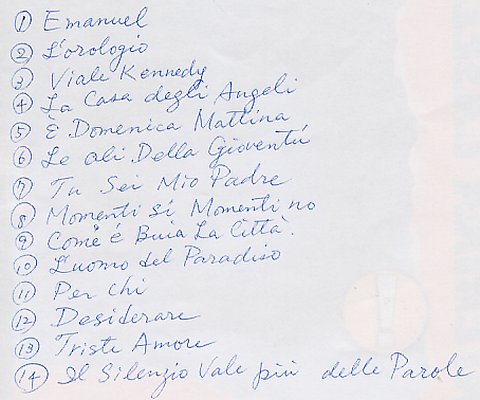 ① Emanuel
② L'orologio
③ Viale Kennedy
④ La Casa degli Angeli
⑤ È Domenica Mattina
⑥ Le ali Della Gioventú
⑦ Tu Sei Mio Padre
⑧ Momenti sí Momenti no
⑨ Com'é é Buia La Città.
⑩ L'uomo del Paradiso
⑪ Per chi
⑫ Desiderare
⑬ Triste Amore
⑭ Il Silenzio Vale più delle Parole